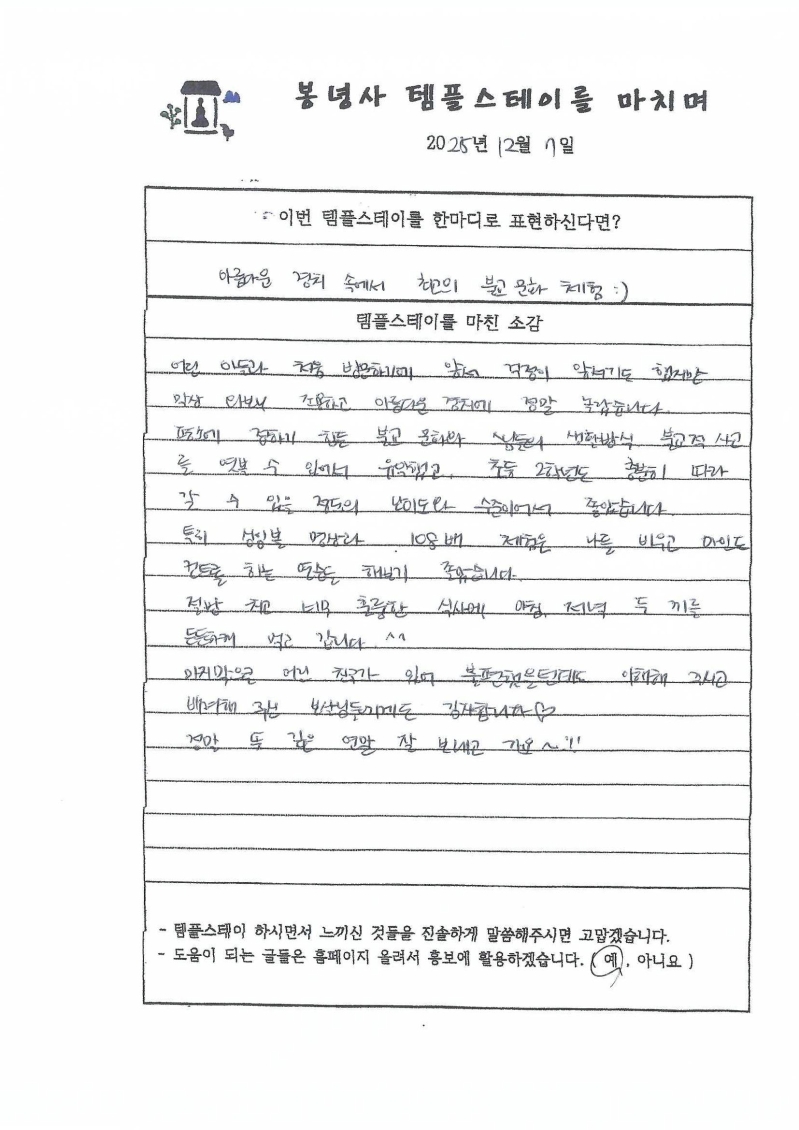 봉녕사 템플스테이를 마치며
2025년 12월 7일
이번 템플스테이를 한마디로 표현하신다면?
아름다운 경치 속에서 최고의 불교 문화 체험 :)
템플스테이를 마친 소감
어린 아들과 처음 방문하기에 앞서 걱정이 앞서기도 했지만
막상 와보니 조용하고 아름다운 경치에 정말 놀랐습니다.
평소에 접하기 힘든 불교 문화와 스님들의 생활방식 불교적 사고
를 엿볼 수 있어서 유익했고, 초등 2학년도 충분히 따라
갈 수 있을 정도의 난이도와 수준이어서 좋았습니다.
특히 싱잉볼 명상과 108배 체험은 나를 비우고 마인드
컨트롤 하는 연습을 해보기 좋았습니다.
절밥 최고 너무 훌륭한 식사에 아침, 저녁 두 끼를
든든하게 먹고 갑니다. ^^
마지막으로 어린 친구가 있어 불편했을텐데도 이해해 주시고
배려해 주신 보살님들께도 감사합니다♡
정말 뜻 깊은 연말 잘 보내고 가요~!!
- 템플스테이 하시면서 느끼신 것들을 진솔하게 말씀해주시면 고맙겠습니다.
- 도움이 되는 글들은 홈페이지 올려서 홍보에 활용하겠습니다. ( 예 , 아니요 )